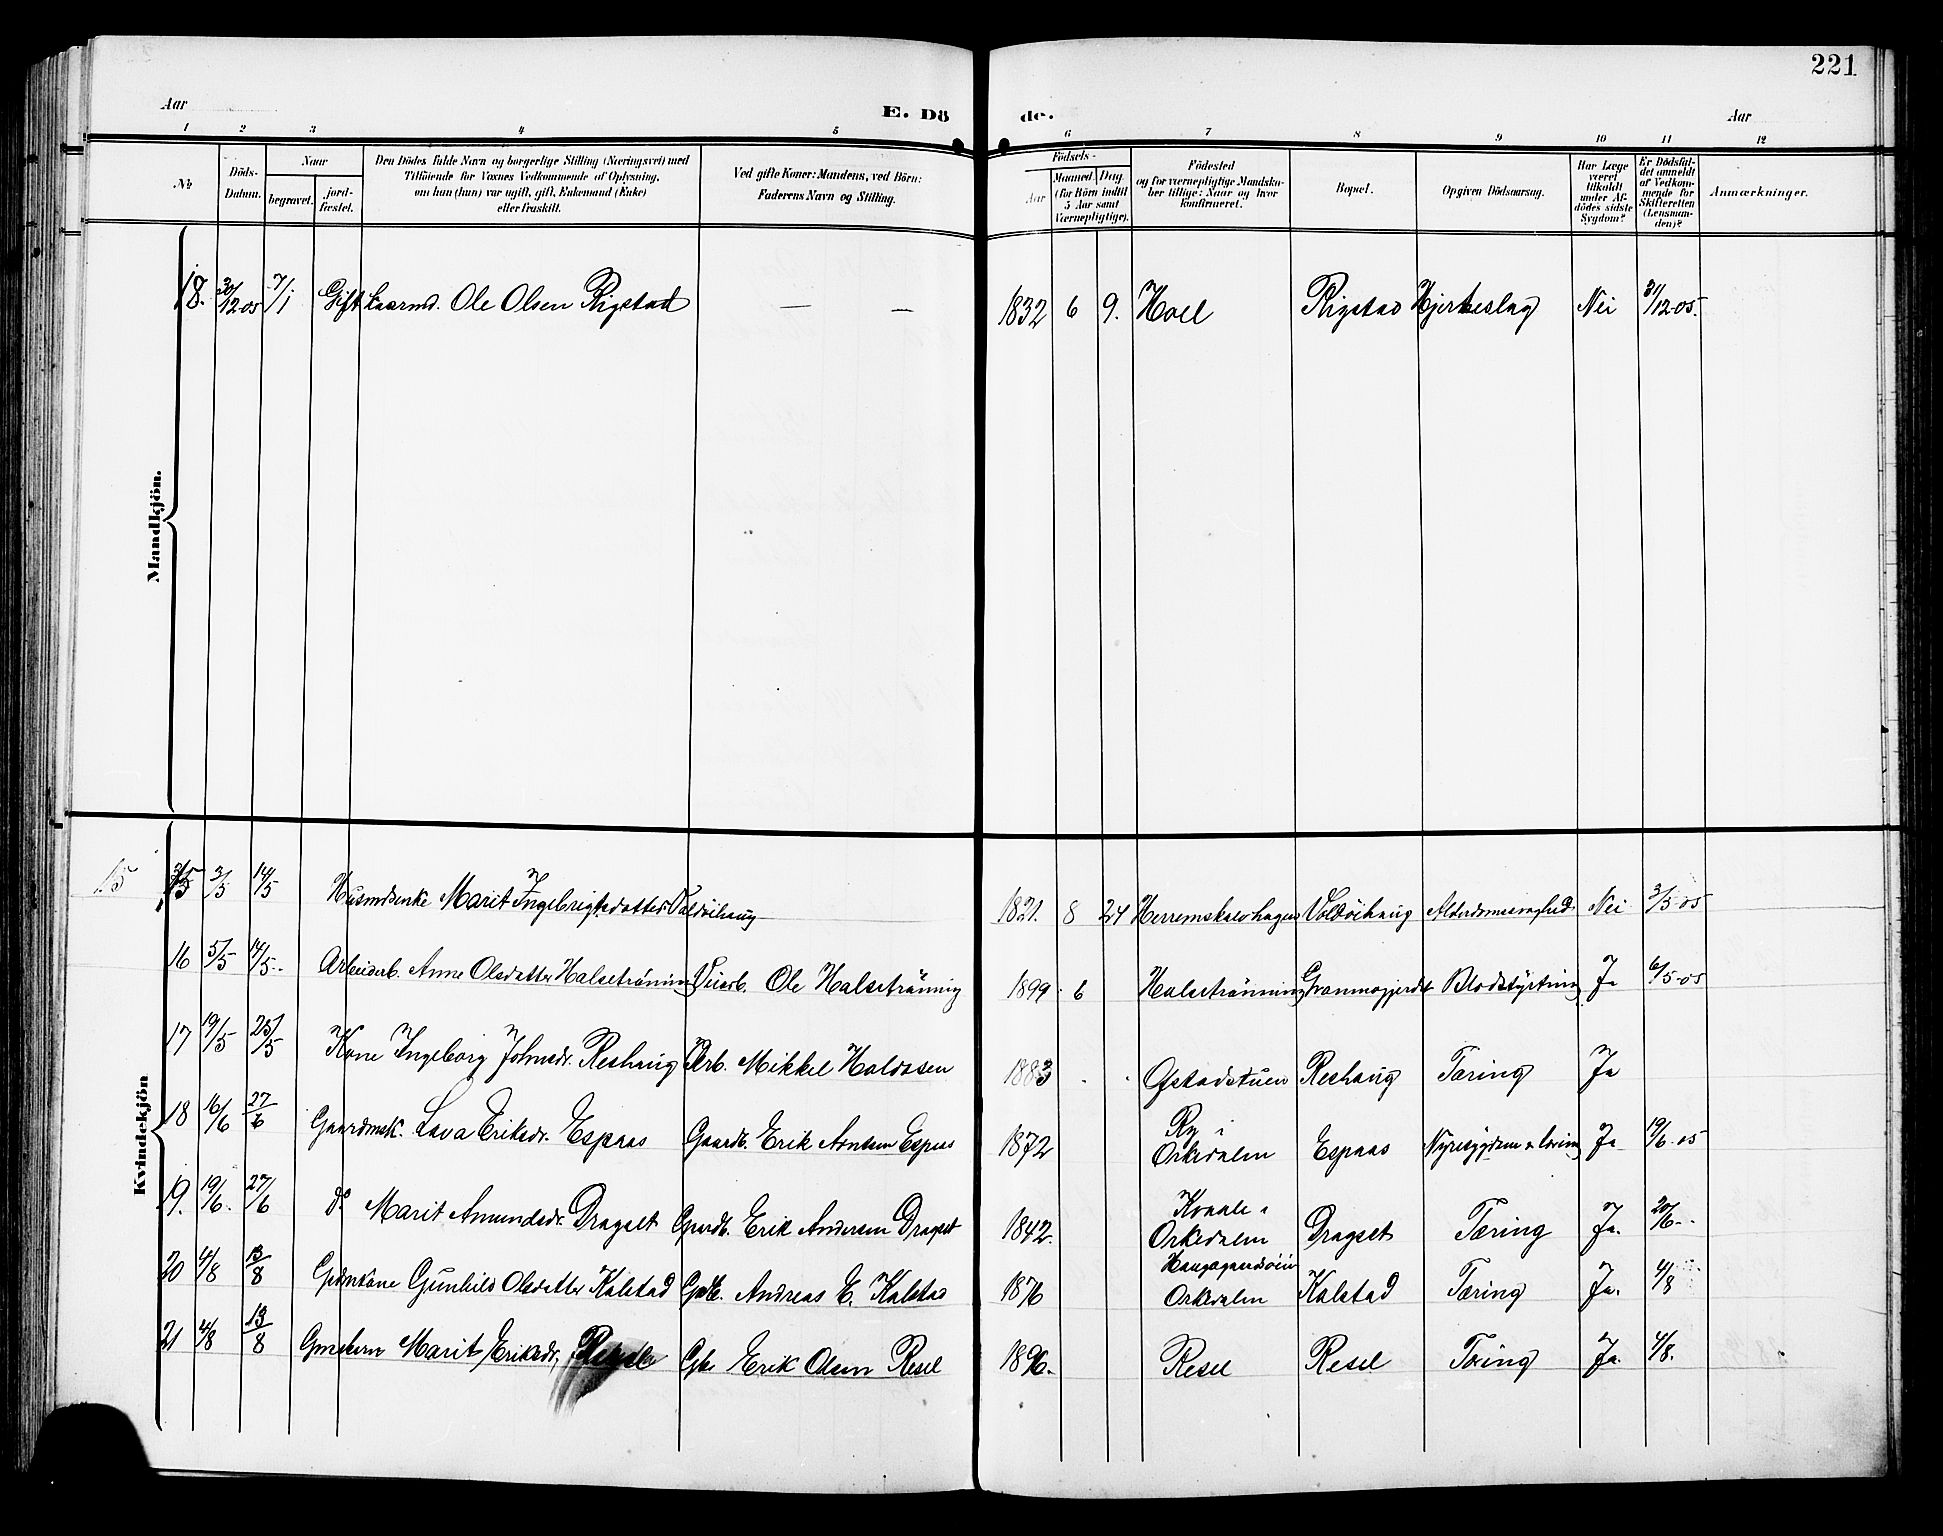 221
Aar
E. Dö
de.
Aar
1 2 3 4 5 6 7 8 9 10 11 12
№
Döds-Datum.
Naar
begravet.
jord-fæstet.
Den Dödes fulde Navn og borgerlige Stilling (Næringsvei) med
Tilföiende for Voxnes Vedkommende af Oplysning,
om hun (hun) var ugift, gift, Enkemand (Enke)
eller fraskilt.
Ved gifte Koner: Mandens, ved Börn:
Faderens Navn og Stilling.
Födsels-
Aar
Maaned Dag
(for Börn indtil
5 Aar samt
Værnepligtige).
Födested
og for værnepligtige Mandska-
ber tillige: Naar og hvor
konfirmeret.
Bopæl.
Opgiven Dödsaarsag.
Har Læge
været
tilkaldt
under Af-
dödes sidste
Sygdom?
Er Dödsfal-
det anmeldt
af Vedkom-
mende for
Skifteretten
(Lensman-
den)?
Anmærkninger.
Mandkjön.
18. 30/12-05 7/1 Gift Ole Olsen Rigstad — — 1832 6 9. Hoel Rigstad Hjerteslag Nei 31/12-05.
Kvindekjön
15 15 2/5 14/5 Husmdsenke Marit Ingebrigtsdatter Voldöihaug 1821. 8 24 Voldöihaug Nei 3/5-05
16 5/5 14/5. Arbeiderb. Anne Olsdatter Halsetrönning Ole Halsetrönning 1899 6 Halsetrönning Blodstyrtning Ja 6/5-05
17 19/5 25/5 Kone Ingeborg Johnsdr. Reshaug Arb. Mikkel Haldosen 1883 Ofstadstuen Reshaug Tæring Ja
18 16/6 27/6 Gaardmsk. Eriksdr. Espaas Gaardb. Erik Arntsen Espaas 1872 Ry i Orkedalen Espaas Ja 19/6-05
19. 19/6. 27/6 do Marit Amundsdr. Dragset Gaardb. Erik Andersen Dragset 1842. Kvaale i Orkedalen Dragset Tæring Ja. 20/6-
20 4/8 13/8 Gdmkone Gunhild Olsdatter Kalstad Andreas E. Kalstad 1876 Orkedalen Kalstad Tæring Ja. 4/8
21 4/8 13/8 Marit Eriksdr. Resel Erik Olsen Resel 1896. Resel Resel Tæring Ja. 4/8.